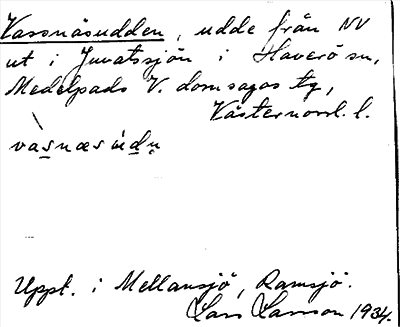 Vassnäsudden, udde från NV
ut i Juvatssjön i Haverö sn,
Medelpads V. domsagas tg,
Västernorrl. l.
vàsnæsúdn̥
Uppt. i Mellansjö, Ramsjö.
Lars Larsson 1934.